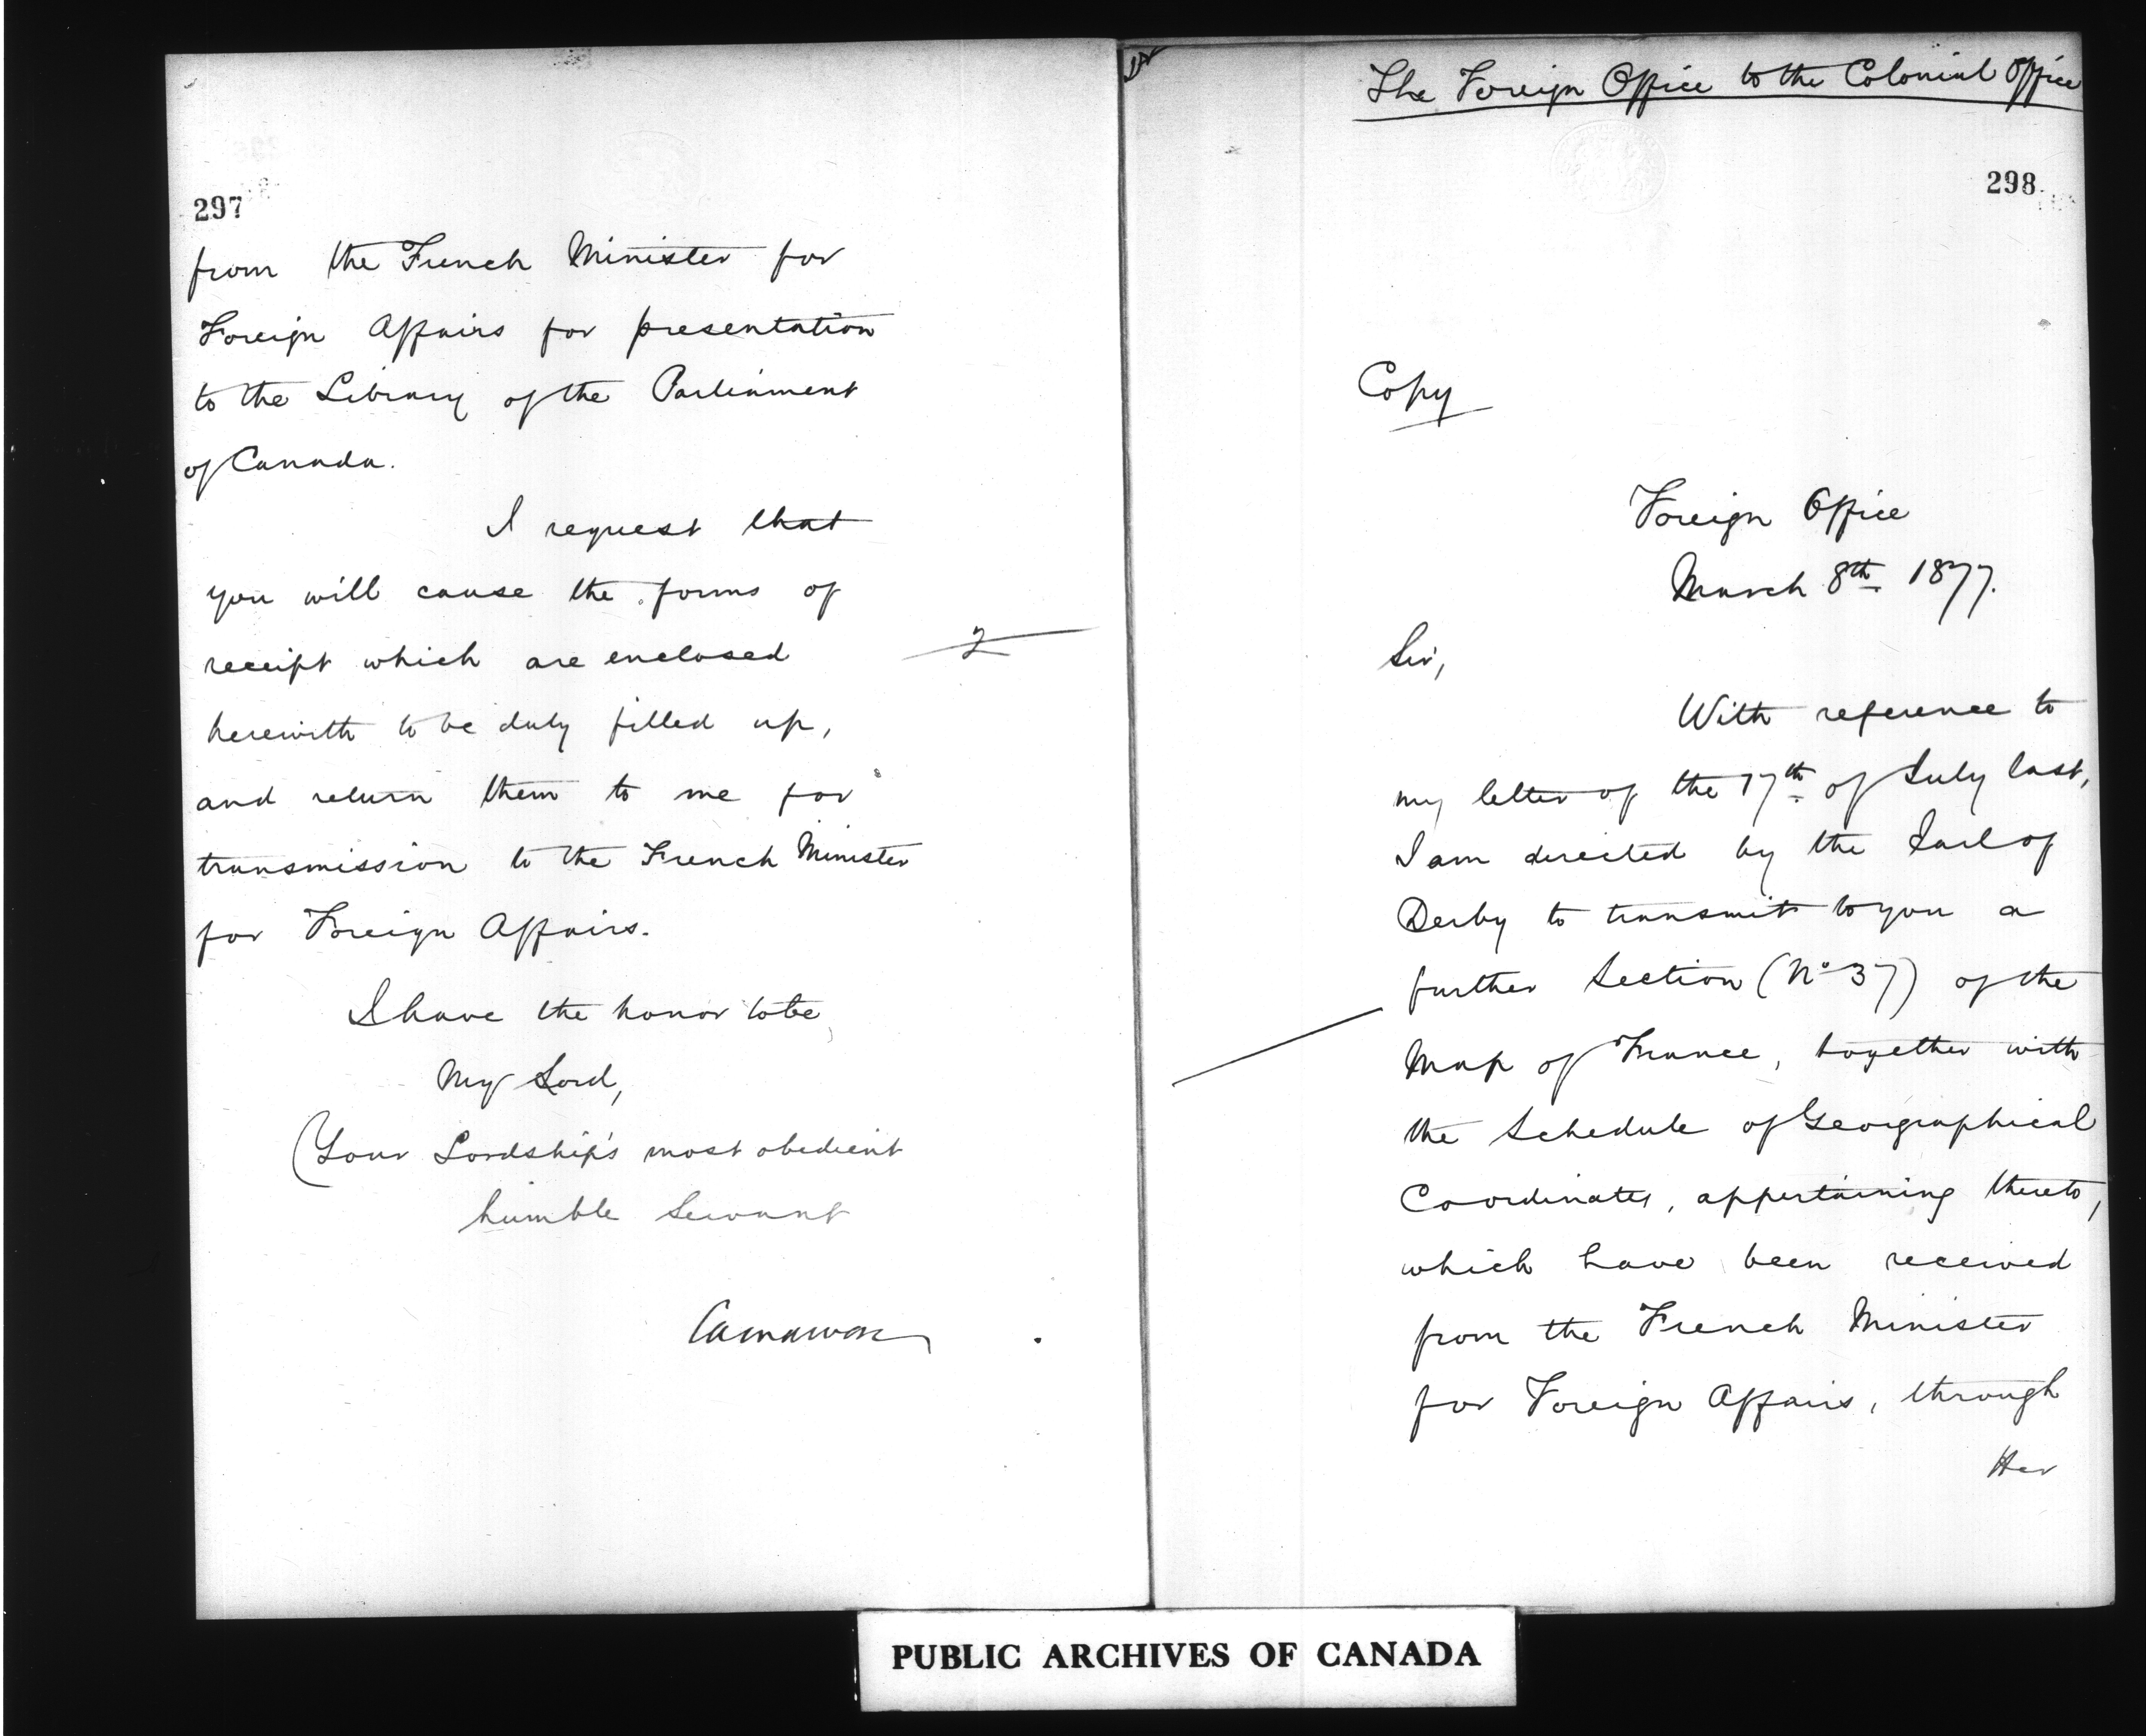 297
from the French Minister for
Foreign Affairs for presentation
to the Library of the Parliament
of Canada.
I request that
you will cause the forms of
receipt which are enclosed
herewith to be duly filled up,
and return them to me for
transmission to the French Minister
for Foreign Affairs.
I have the honor to be
My Lord,
Your Lordship's most obedient
humble Servant
Carnarvon
2
The Foreign Office to the Colonial Office
298
Copy
Foreign Office
March 8th 1877.
Sir,
With reference to
my letter of the 17th of July last,
I am directed by the Earl of
Derby to transmit to you a
further Section (No 37) of the
Map of France, together with
the Schedule of Geographical
Coordinates, appertaining thereto,
which have been received
from the French Minister
for Foreign Affairs, through
Her
PUBLIC ARCHIVES OF CANADA